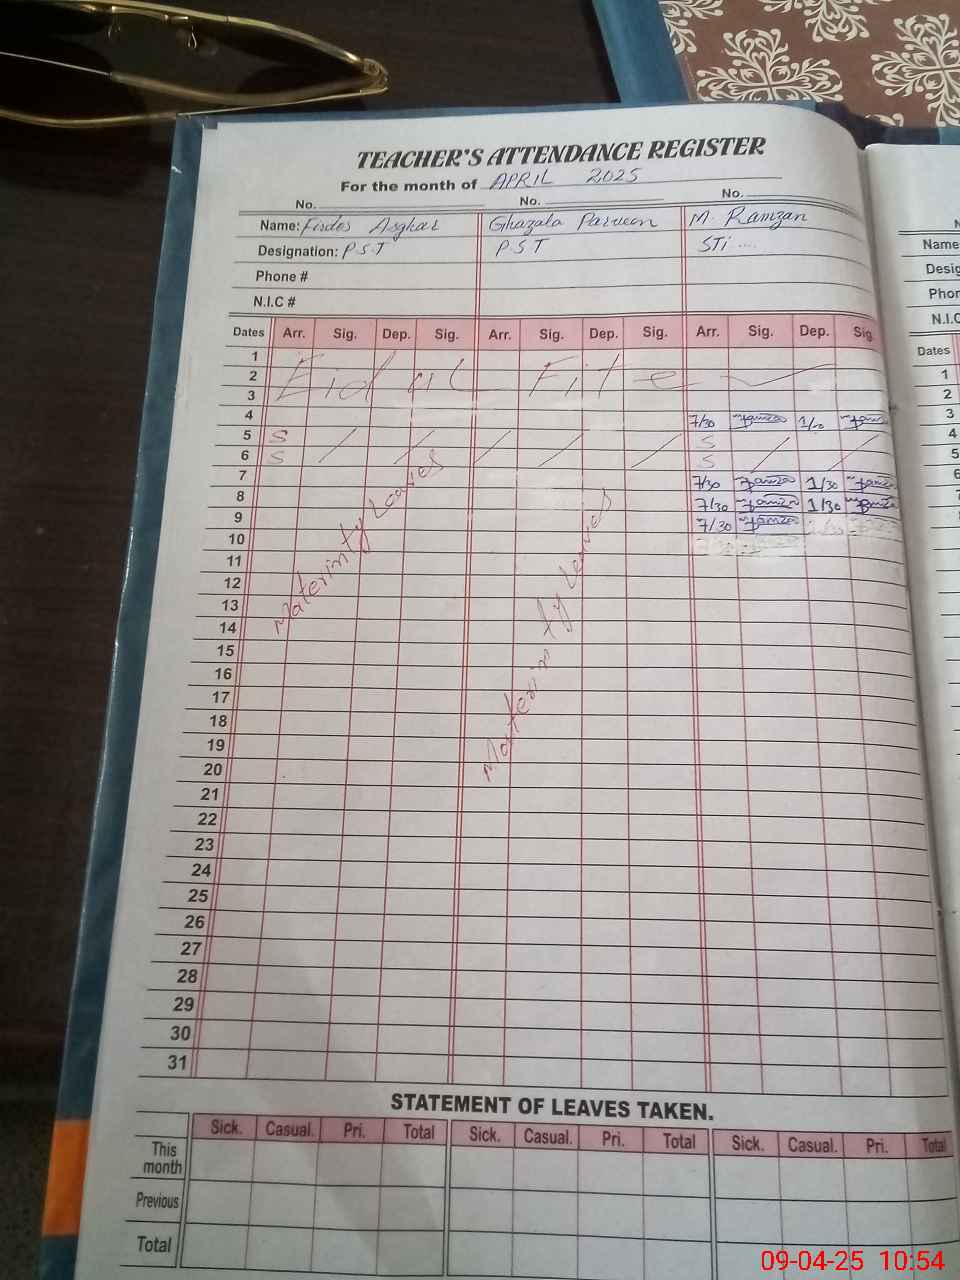 TEACHER'S ATTENDANCE REGISTER
For the month of APRIL 2025
No. No. No.
Name: Firdos Asghar Ghazala Parveen M. Ramzan
Designation: P.S.T P S T STi ....
Phone #
N.I.C #
Dates Arr. Sig. Dep. Sig. Arr. Sig. Dep. Sig. Arr. Sig. Dep. Sig.
1
2 Eid ul Fite
3
4 7/30 Ramzan
5 S S
6 S S
7 7/30 Ramzan 1/30 Ramzan
8 7/30 Ramzan 1/30 Ramzan
9 7/30 Ramzan
10
11
12
13
14
15
16
17
18
19
20
21
22
23
24
25
26
27
28
29
30
31
Materinty Leaves
Materinty Leaves
STATEMENT OF LEAVES TAKEN.
Sick. Casual. Pri. Total Sick. Casual. Pri. Total Sick. Casual. Pri. Total
This month
Previous
Total
Name
Desig
Phon
N.I.C
Dates
1
2
3
4
5
6
7
8
9
09-04-25 10:54